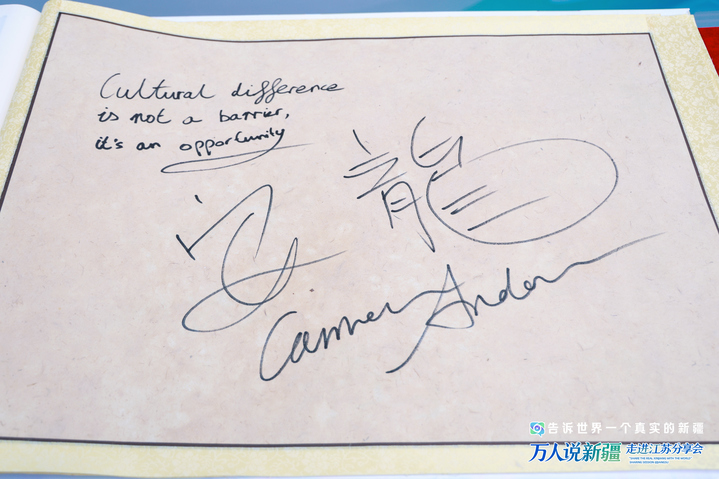 Cultural difference
is not a barrier,
it's an opportunity
龍
告诉世界一个真实的新疆
万人说新疆 走进江苏分享会